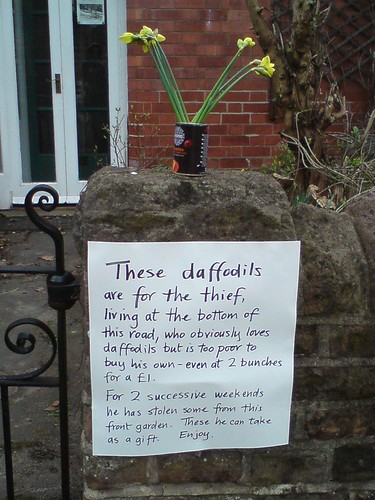 These daffodils
are for the thief,
living at the bottom of
this road, who obviously loves
daffodils but is too poor to
buy his own - even at 2 bunches
for a £1.
For 2 successive weekends
he has stolen some from this
front garden. These he can take
as a gift. Enjoy.